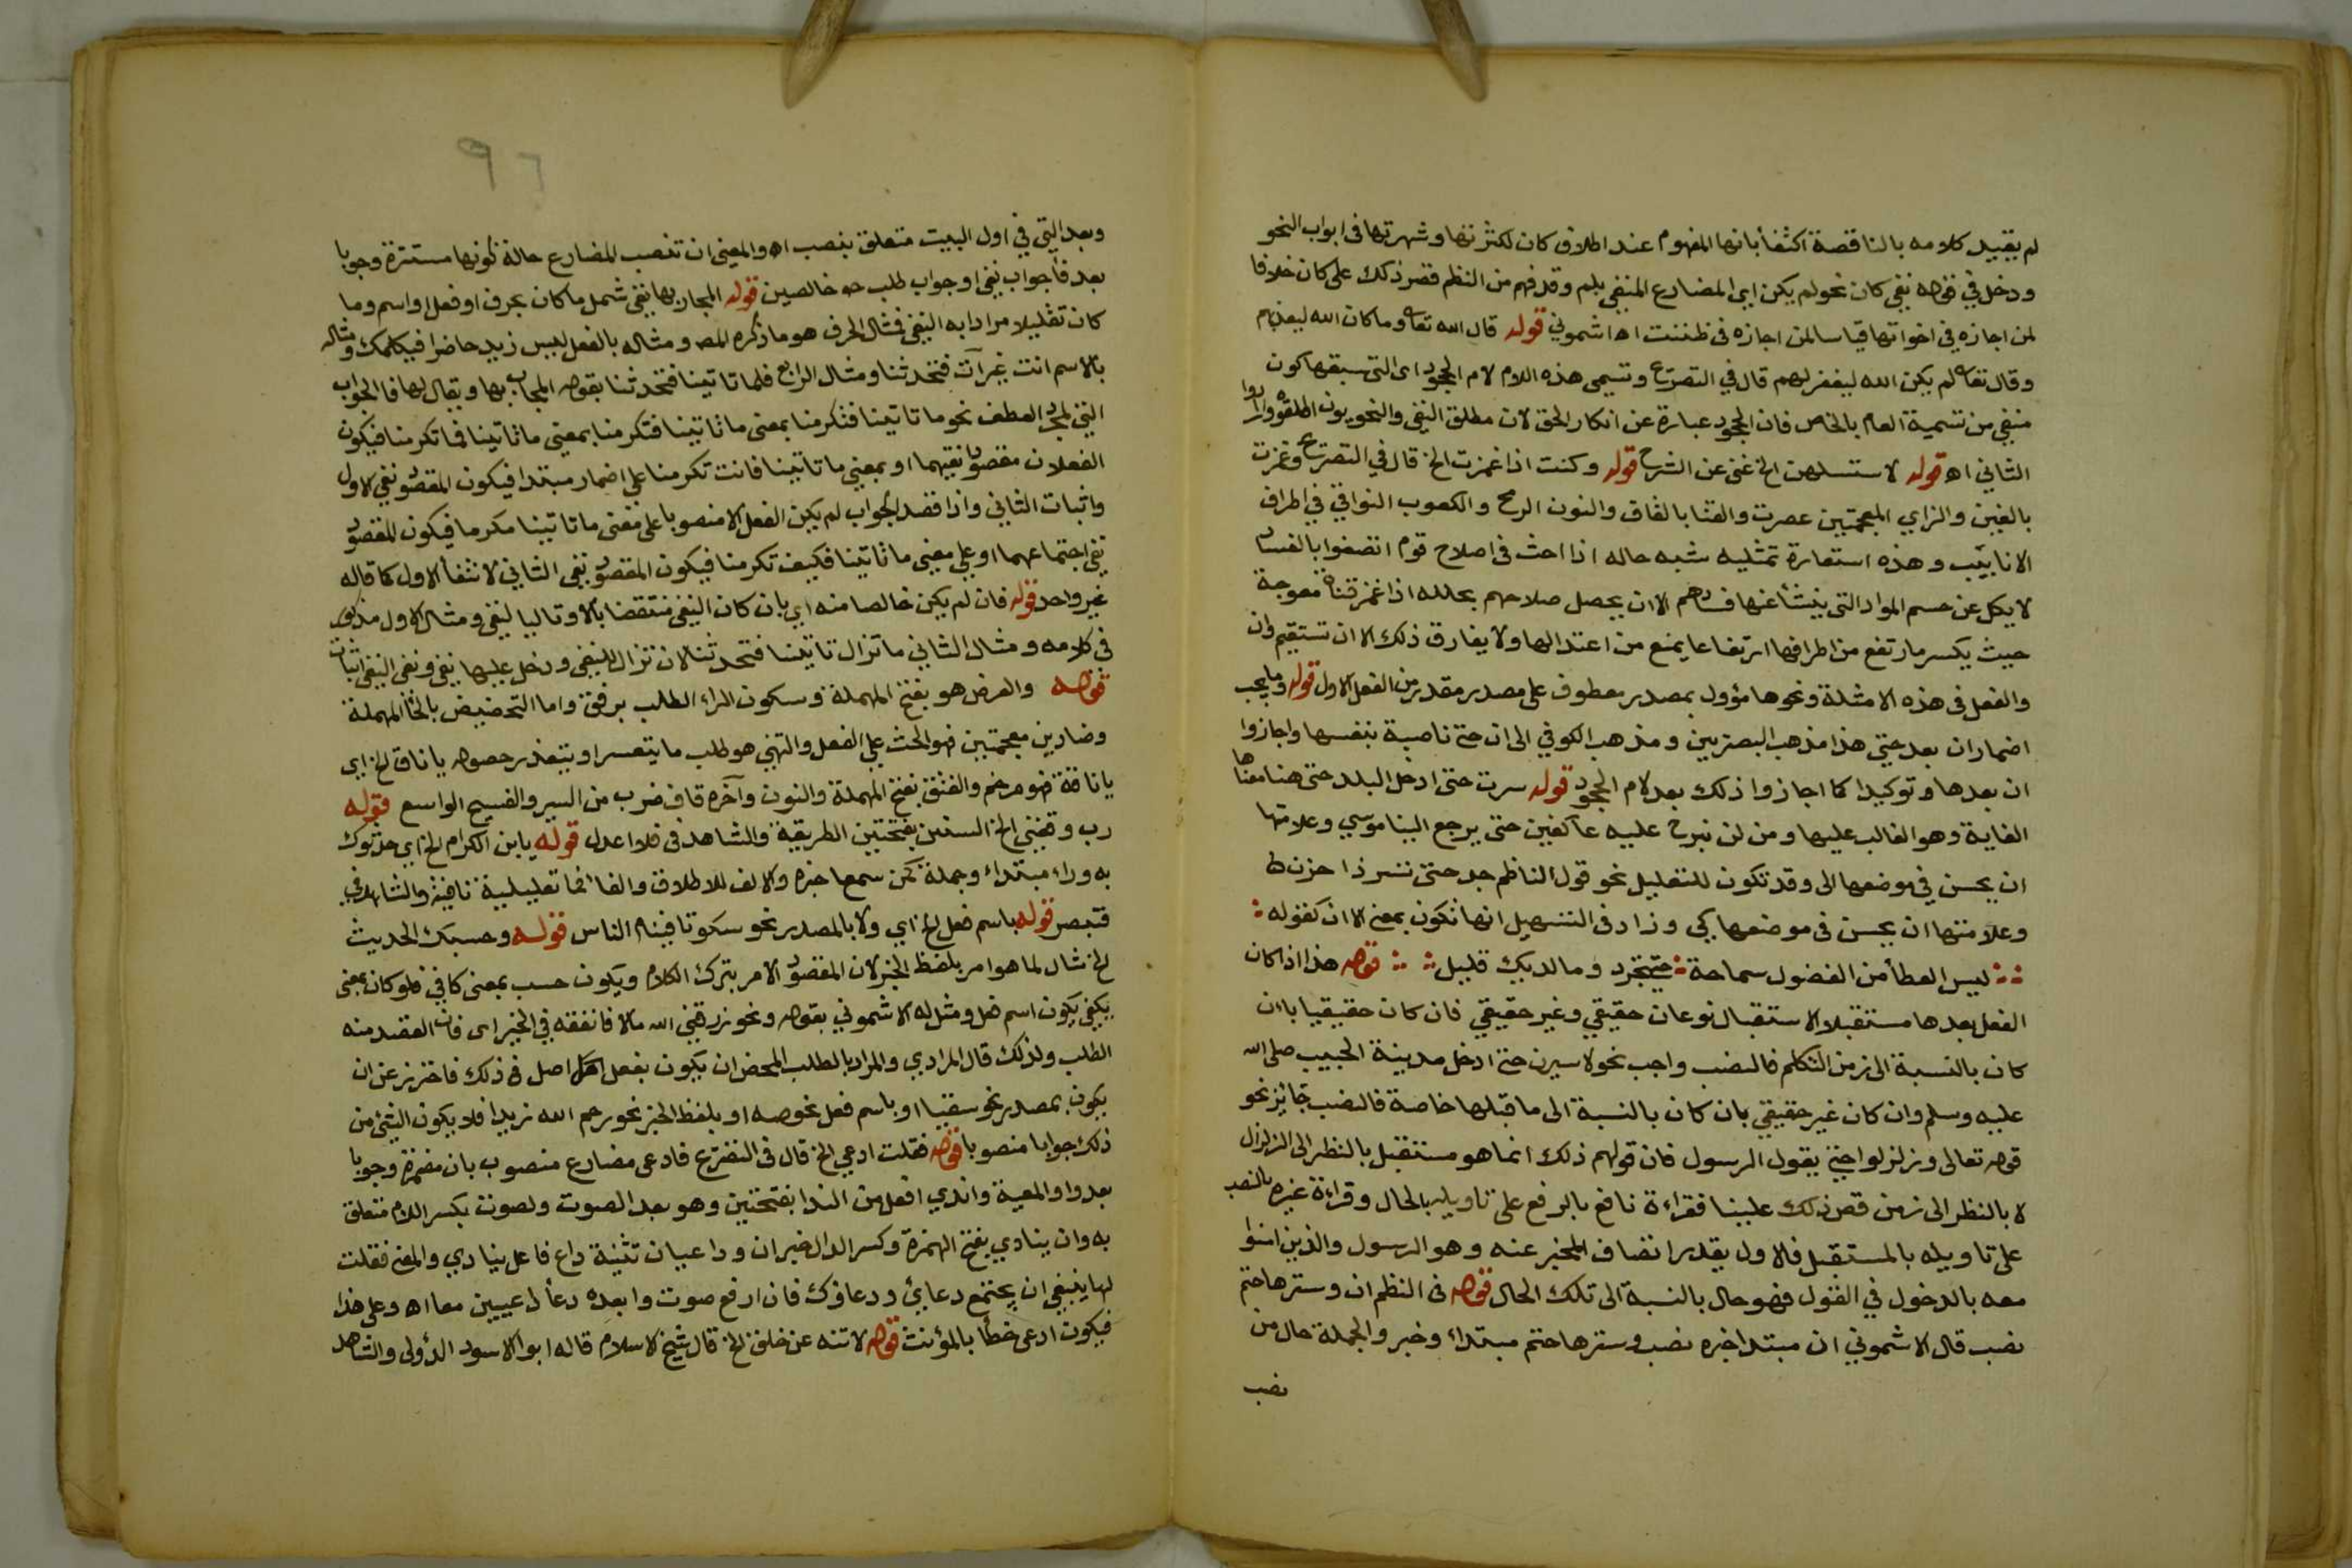 لم يقيد كلامه بالناقصة اكتفأ بانها المفهوم عند اطلاق كان لكثرتها وشهرتها فى ابواب النحو
ودخل في قوله نفي كان نحو لم يكن اي المضارع المنفي بلم وقد فهم من النظم قصر ذلك على كان خلافا
لمن اجازه في اخواتها قياسا لمن اجازه فى ظننت اه اشموني قوله قال الله تعا وما كان الله ليعذبهم
وقال تعا لم يكن الله ليغفر لهم قال في التصريح وتسمى هذه اللام لام الجحود اى التى سبقها كون
منفي من تسمية العام بالخاص فان الجحود عبارة عن انكار الحق لان مطلق النفي والنحويون اطلقوه وارادوا
الثاني اه قوله لاستسهلن الخ غنى عن الشرح قوله وكنت اذا غمزت الخ قال في التصريح وغمزت
بالغين والزاي المعجمتين عصرت والقنا بالقاف والنون الرمح والكعوب النواتي في اطراف
الانابيب وهذه استعارة تمثليه شبه حاله اذا اخذ فى اصلاح قوم اتصفوا بالفساد
لا يكل عن حسم المواد التى ينشأ عنها فسادهم الا ان يحصل صلاحهم بحاله اذا غمز قناة معوجة
حيث يكسر ما رتفع من اطرافها ارتفاعا يمنع من اعتدالها ولا يفارق ذلك الا ان تستقيم وان
والفعل فى هذه الامثلة ونحوها مؤول بمصدر معطوف على مصدر مقدر من الفعل الاول قوله وما يجب
اضماران بعد حتى هذا مذهب البصريين ومذهب الكوفي الى ان حتى ناصبة بنفسها واجازوا
ان بعدها وتوكيدا كما اجازوا ذلك بعد لام الجحود قوله سرت حتى ادخل البلد حتى هنا معناها
الغاية وهو الغالب عليها ومن لن نبرح عليه عاكفين حتى يرجع الينا موسي وعلامتها
ان يحسن في موضعها الى وقد تكون للتعليل نحو قول الناظم جد حتى تسر ذا حزن ط
وعلامتها ان يحسن فى موضعها كي وزاد فى التسهيل انها تكون بمعنى الا ان كقوله
ليس العطأ من الفضول سماحة حتى تجود وما لديك قليل قوله هذا اذا كان
الفعل بعدها مستقبلا الاستقبال نوعان حقيقي وغير حقيقي فان كان حقيقيا بان
كان بالنسبة الى زمن التكلم فالنصب واجب نحو لاسيرن حتى ادخل مدينة الحبيب صلى الله
عليه وسلم وان كان غير حقيقي بان كان بالنسبة الى ما قبلها خاصة فالنصب جائز نحو
قوله تعالى وزلزلوا حتى يقول الرسول فان قولهم ذلك انما هو مستقبل بالنظر الى الزلزال
لا بالنظر الى زمن قص ذلك علينا فقراءة نافع بالرفع على تاويله بالحال وقراءة غيره بالنصب
على تاويله بالمستقبل فالاول يقدر اتصاف المخبر عنه وهو الرسول والذين امنوا
معه بالدخول في القول فهو حال بالنسبة الى تلك الحال قوله فى النظم ان وسترها حتم
نصب قال الاشموني ان مبتدا خبره نصب وسترها حتم مبتداء وخبر والجملة حال من
نصب
٩٦
وبعد التي في اول البيت متعلق بنصب اه والمعنى ان تنصب المضارع حالة كونها مستترة وجوبا
بعد فأجواب نفي او جواب طلب خالصين قوله المجاب بها نفي شمل ما كان بحرف او فعل او اسم وما
كان تقليلا مرادا به النفي فمثال الحرف هو ما ذكره المص ومثاله بالفعل ليس زيد حاضرا فيكلمك ومثاله
بالاسم انت غير آت فتحدثنا ومثال الرابع قلما تاتينا فتحدثنا بقوله المجاب بها ويقال لها فا الجواب
التي لمجرد العطف نحو ما تاتينا فتكرمنا بمعنى ما تاتينا فتكرمنا بمعنى ما تاتينا فما تكرمنا فيكون
الفعلان مقصودا نفيهما او بمعنى ما تاتينا فانت تكرمنا على اضمار مبتدا فيكون المقصود نفي الاول
واثبات الثاني واذا قصد الجواب لم يكن الفعل الا منصوبا على معنى ما تاتينا مكرما فيكون المقصود
نفي اجتماعهما او على معنى ما تاتينا فكيف تكرمنا فيكون المقصود نفي الثاني لانتفأ الاول كما قاله
غير واحد قوله فان لم يكن خالصا منه اي بان كان النفي منتقضا بالا وتاليا لنفي ومثال الاول مذكور
فى كلامه ومثال الثاني ما تزال تاتينا فتحدثنا لان تزال للنفي ودخل عليها نفي ونفي النفي اثبات
قوله والعرض هو بفتح المهملة وسكون الراء الطلب برفق واما التحضيض بالحأ المهملة
وضادين معجمتين فهو الحث على الفعل والتمني هو طلب ما يتعسر او يتعذر حصوله يا ناق الخ اي
يا ناقة فهو مرخم والعنق بفتح المهملة والنون وآخره قاف ضرب من السير والفسيح الواسع قوله
رب وفقني الخ السنن بفتحتين الطريقة والشاهد فى فلا اعدل قوله يا ابن الكرام الخ اي حدثوك
به وراء مبتداء وجملة كمن سمعا خبره والالف للاطلاق والفا فما تعليلية نافية والشاهد في
فتبصر قوله باسم فعل الخ اي ولا بالمصدر نحو سكوتا فينام الناس قوله وحسبك الحديث
الخ مثال لما هو امر بلفظ الخبر لان المقصود الامر بترك الكلام ويكون حسب بمعنى كافي فلو كان بمعنى
يكفي يكون اسم فعل ومثل له الاشموني بقوله ونحو رزقني الله مالا فانفقه في الخير اى فان القصد منه
الطلب ولذلك قال المرادي والمراد بالطلب المحض ان يكون بفعل اصل فى ذلك فاحترز عن ان
يكون بمصدر نحو سقيا او باسم فعل نحو صه او بلفظ الخبر نحو رحم الله زيدا فلا يكون لشئ من
ذلك جوابا منصوبا قوله فقلت ادعي الخ قال فى التصريح فادعى مضارع منصوب بان مضمرة وجوبا
بعد واو المعية واندي افعل من الندا بفتحتين وهو بعد الصوت ولصوت بكسر اللام متعلق
به وان ينادي بفتح الهمزة وكسر الدال خبر ان وداعيان تثنية داع فاعل ينادي والمعنى فقلت
لها ينبغي ان يجتمع دعائي ودعاؤك فان ارفع صوت وابعده دعأ داعيين معا اه وعلى هذا
فيكون ادعى خطأ بالمؤنث قوله لا تنه عن خلق الخ قال شيخ الاسلام قاله ابو الاسود الدؤلى والشاهد